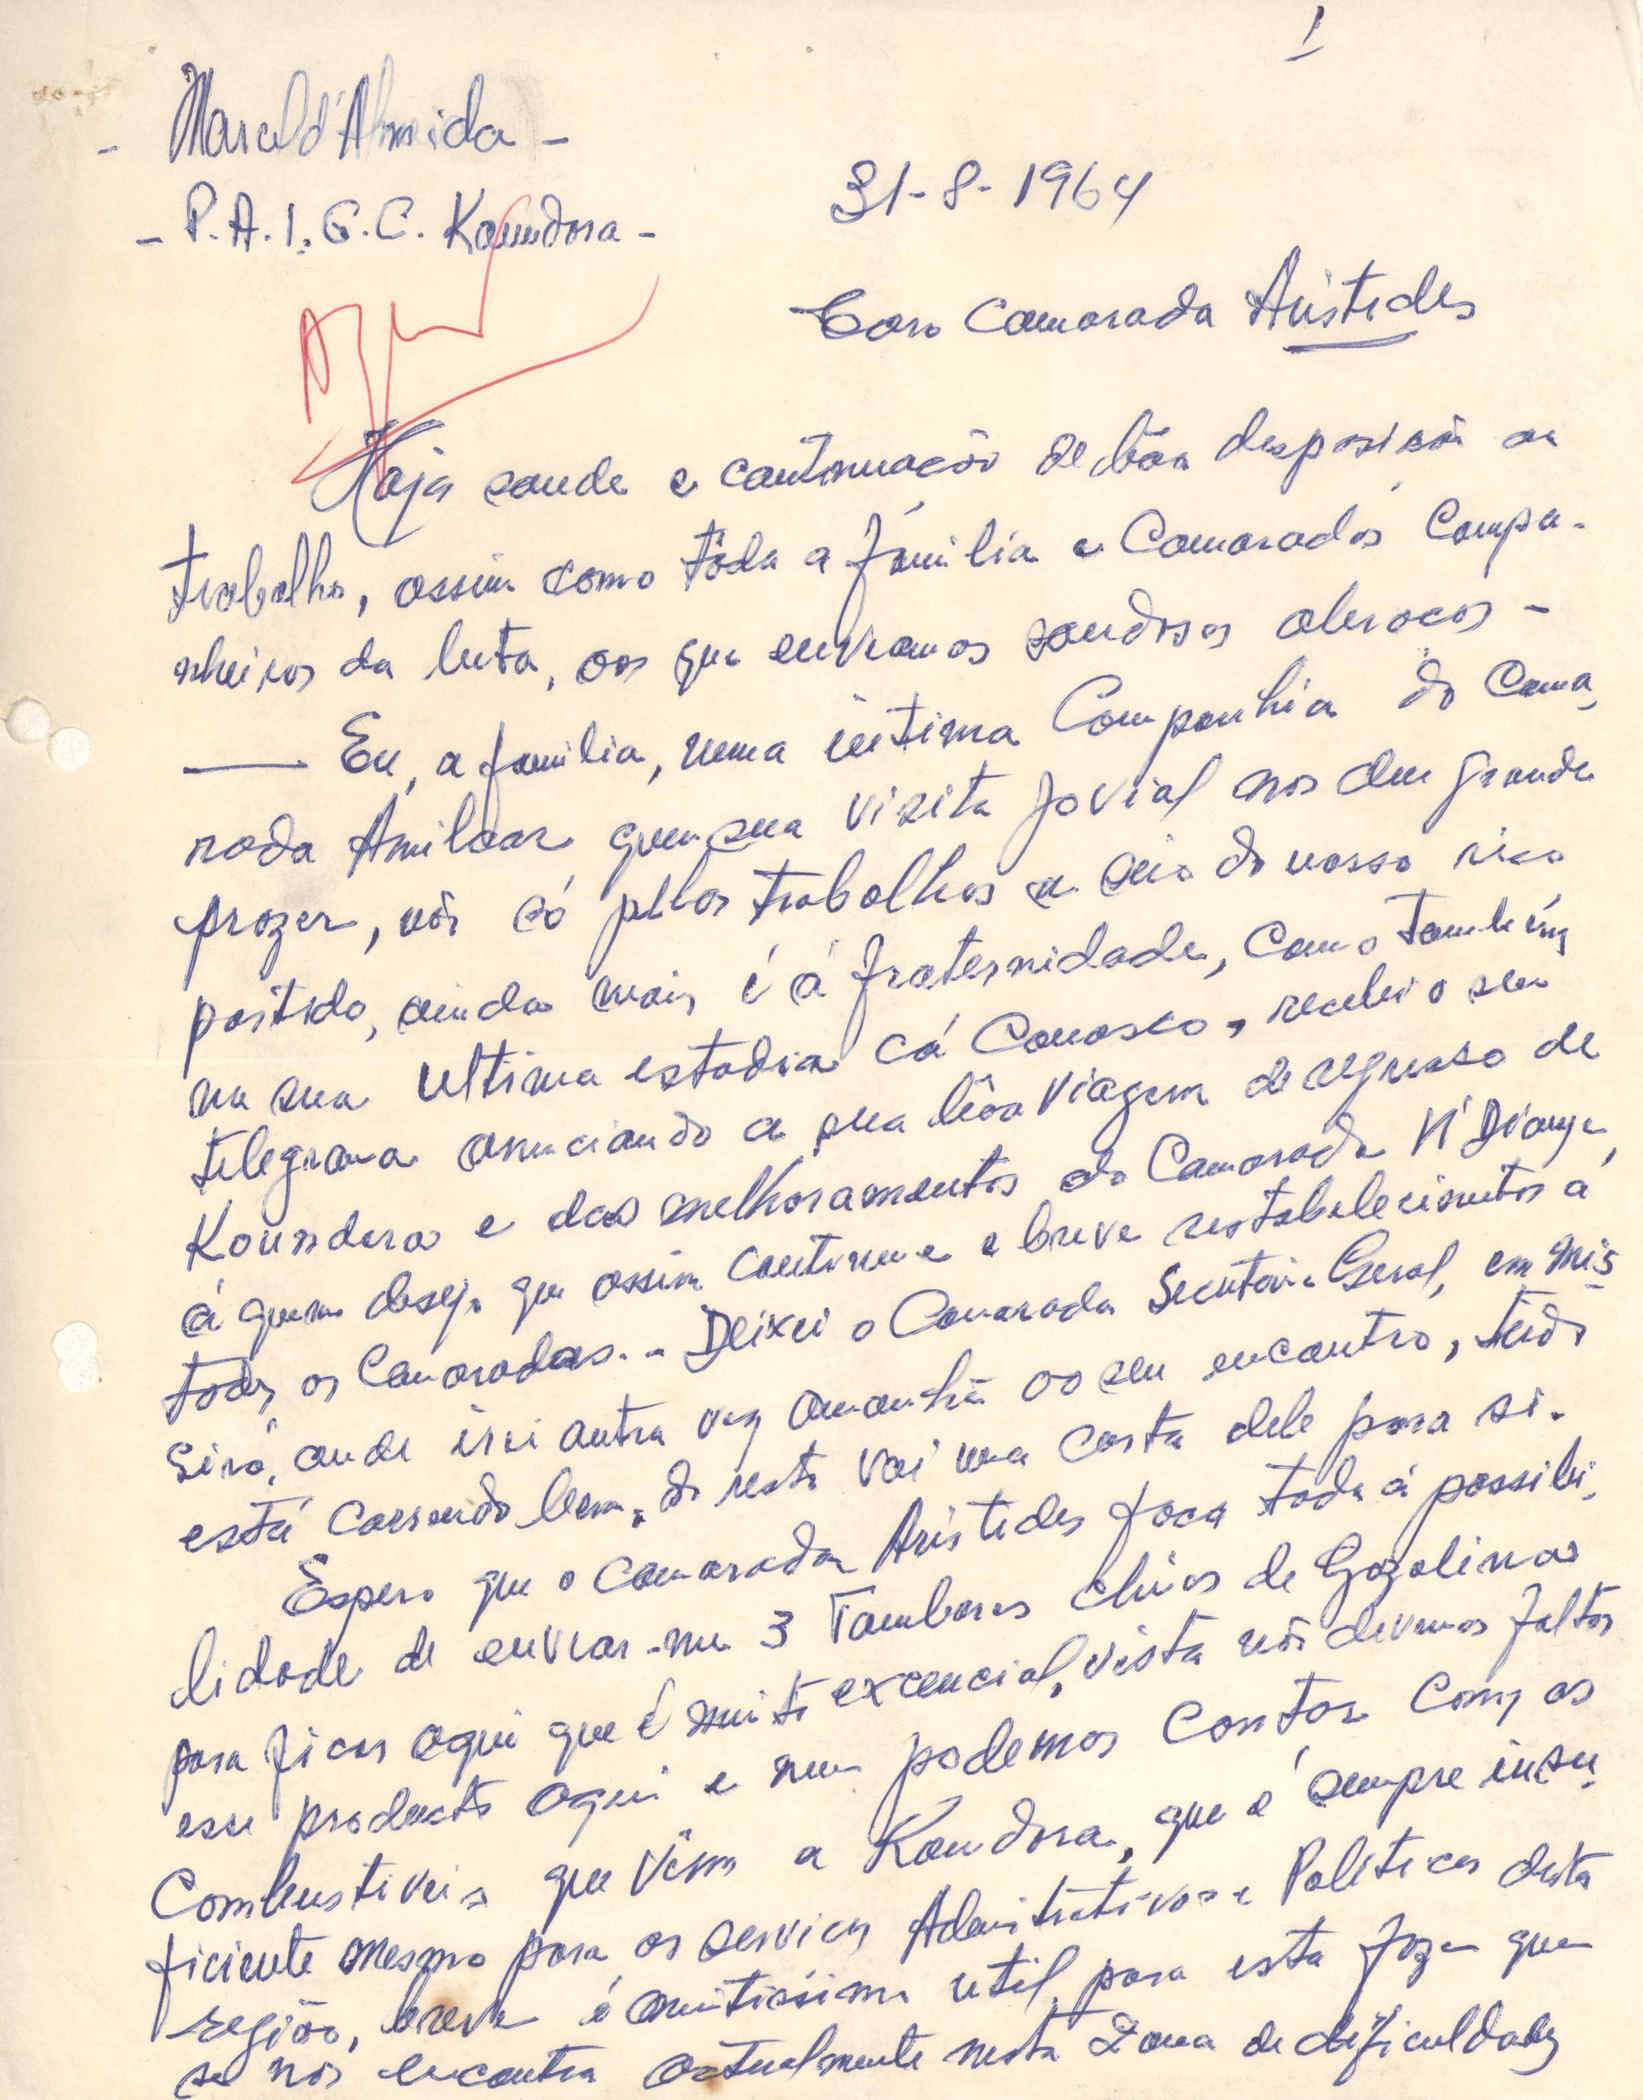 1
- Marcel d'Almeida -
- P.A.I.G.C. Koundara -
31-8-1964
Caro Camarada Aristides
Haja saude e continuação de bôa desposisão ao
trabalho, assim como tôda a família e Camarados Compa-
nheiros da luta, aos que enviamos saudosos abraços -
Eu, a familia, numa intima Companhia do Cama,
rada Amilcar quem sua visita jovial nos deu grande
prazer, não só pelos trabalhos no seio do nosso
partido, ainda mais é á fraternidade, como também
na sua ultima estadia cá Conosco, recebi o seu
telegrama anunciando a sua bôa viagem de regresso de
Koundara e das melhoramentos do Camarada N'Diange,
á quem desejo que assim continue e breve restabelecimentos á
todos os Camaradas. - Deixei o Camarada Secretário Geral, em Mis
sirá, onde irei outra vez amanhã ao seu encontro, tudo
está correndo bem, do resto vai uma carta dele para si.
Espero que o Camarada Aristides faça toda á possibi,
lidade de enviar-me 3 Tambores chios de Gazolinas
para ficar aqui que é muito excencial, vista nós devemos faltas
esse producto aqui e nem podemos contar com os
Combustiveis que vêm a Koundara, que é sempre insu,
ficiente mesmo para os serviços Admitrativos e Politicos desta
região, é muitissimo util, para esta foze que
se nós encontra actualmente nesta Zona de dificuldades